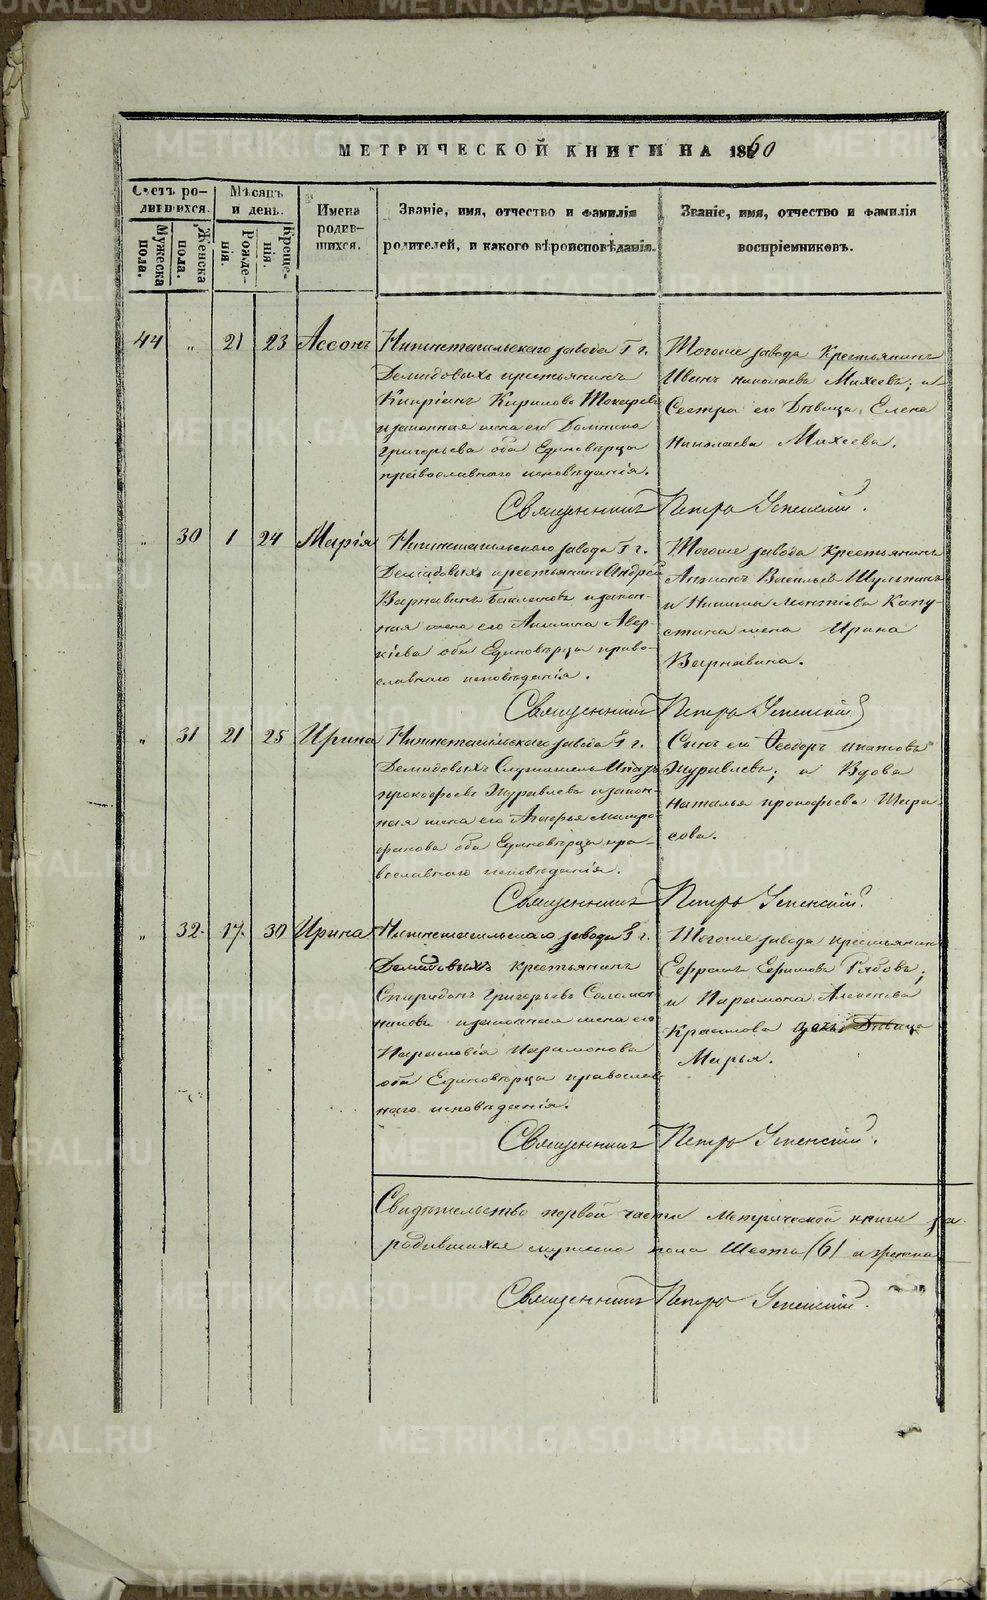 МЕТРИЧЕСКОЙ КНИГИ НА 1860
Счетъ родившихся.
Мужеска пола.
Женска пола.
Мѣсяцъ и день.
Рожденія.
Крещенія.
Имена родившихся.
Званіе, имя, отчество и фамилія
родителей, и какого вѣроисповѣданія.
Званіе, имя, отчество и фамилія
воспріемниковъ.
44 „ 21 23
Нижнетагильскаго завода Г г.
Демидовыхъ крестьянинъ
Кипріанъ Кириловъ Токаревъ
и законная жена его Домнина
Григорьева оба Единовѣрца
православнаго исповѣданія.
Тогоже завода Крестьянинъ
Иванъ Николаевъ Михеевъ; и
Сестра его Дѣвица Елена
Николаева Михеева.
Священникъ Петръ Успенскій.
„ 30 1 24 Марія
Нижнетагильскаго завода Г г.
Демидовыхъ крестьянинъ Андрей
Варнавинъ и закон-
ная жена его Авер-
кіева оба Единовѣрца право-
славнаго исповѣданія.
Тогоже завода Крестьянинъ
Антонъ Васильевъ Шульпинъ
и Никиты Леонтіева Капу-
стина жена Ирина
Варнавина.
Священникъ Петръ Успенскій
„ 31 21 25 Ирина
Нижнетагильскаго завода Г г.
Демидовыхъ Служитель Ипатъ
Прокофьевъ Журавлевъ и закон-
ная жена его Агафья Митро-
фанова оба Единовѣрца пра-
вославнаго исповѣданія.
Сынъ его Ѳеодоръ Ипатовъ
Журавлевъ; и Вдова
Наталья Прокофьева Шара
сова.
Священникъ Петръ Успенскій.
„ 32. 17. 30 Ирина
Нижнетагильскаго завода Г г.
Демидовыхъ крестьянинъ
Спиридонъ Григорьевъ Соломен
никовъ и законная жена его
Парасковія Парамонова
оба Единовѣрца православ
наго исповѣданія.
Тогоже завода крестьянинъ
Ефремъ Ефимовъ Рябовъ;
и Парамона Алексѣева
Краснова дочь Дѣвица
Марья.
Священникъ Петръ Успенскій.
Свидѣтельство первой части Метрической книги за
родившихся мужеска пола Шесть (6) и женска
Священникъ Петръ Успенскій.
METRIKI.GASO-URAL.RU